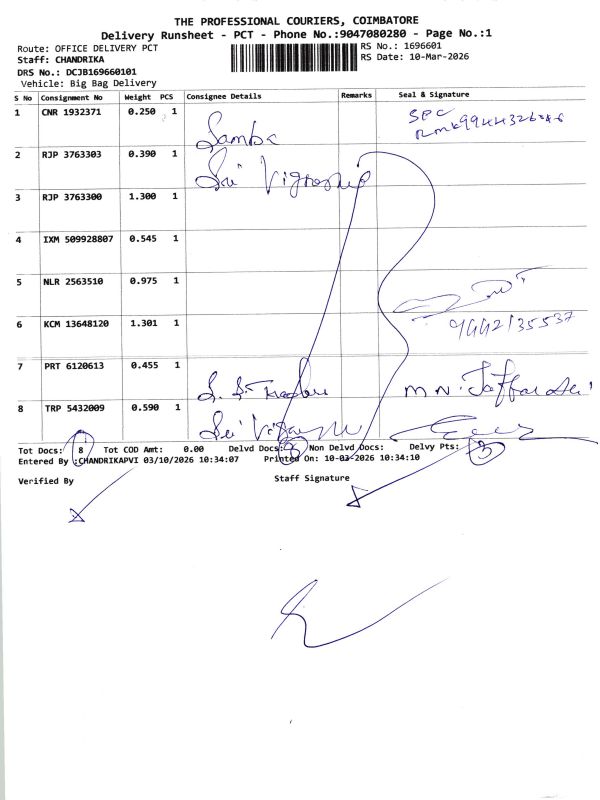 THE PROFESSIONAL COURIERS, COIMBATORE
Delivery Runsheet - PCT - Phone No.:9047080280 - Page No.:1
Route: OFFICE DELIVERY PCT
RS No.: 1696601
Staff: CHANDRIKA
RS Date: 10-Mar-2026
DRS No.: DCJB169660101
Vehicle: Big Bag Delivery
S No Consignment No Weight PCS Consignee Details Remarks Seal & Signature
1 CNR 1932371 0.250 1 Samba SPC
2 RJP 3763303 0.390 1 Sri
3 RJP 3763300 1.300 1
4 IXM 509928807 0.545 1
5 NLR 2563510 0.975 1
6 KCM 13648120 1.301 1 9442135537
7 PRT 6120613 0.455 1 S. S. M N.
8 TRP 5432009 0.590 1 Sri
Tot Docs: 8 Tot COD Amt: 0.00 Delvd Docs: 8 Non Delvd Docs: Delvy Pts: 3
Entered By :CHANDRIKAPVI 03/10/2026 10:34:07 Printed On: 10-03-2026 10:34:10
Verified By Staff Signature